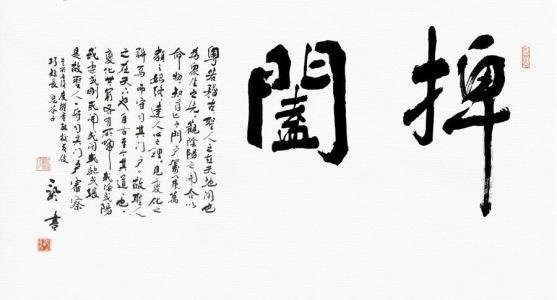 捭
闔
粵若稽古聖人之在天地間也
為眾生之先觀陰陽之開合以
命物知存亡之門戶籌策萬
類之終始達人心之理見變化之
朕焉而守司其門戶故聖人
之在天下也自古至今其道一也
變化無窮各有所歸或陰或陽
或柔或剛或開或閉或弛或張
是故聖人一守司其門戶審察
鬼谷子
書